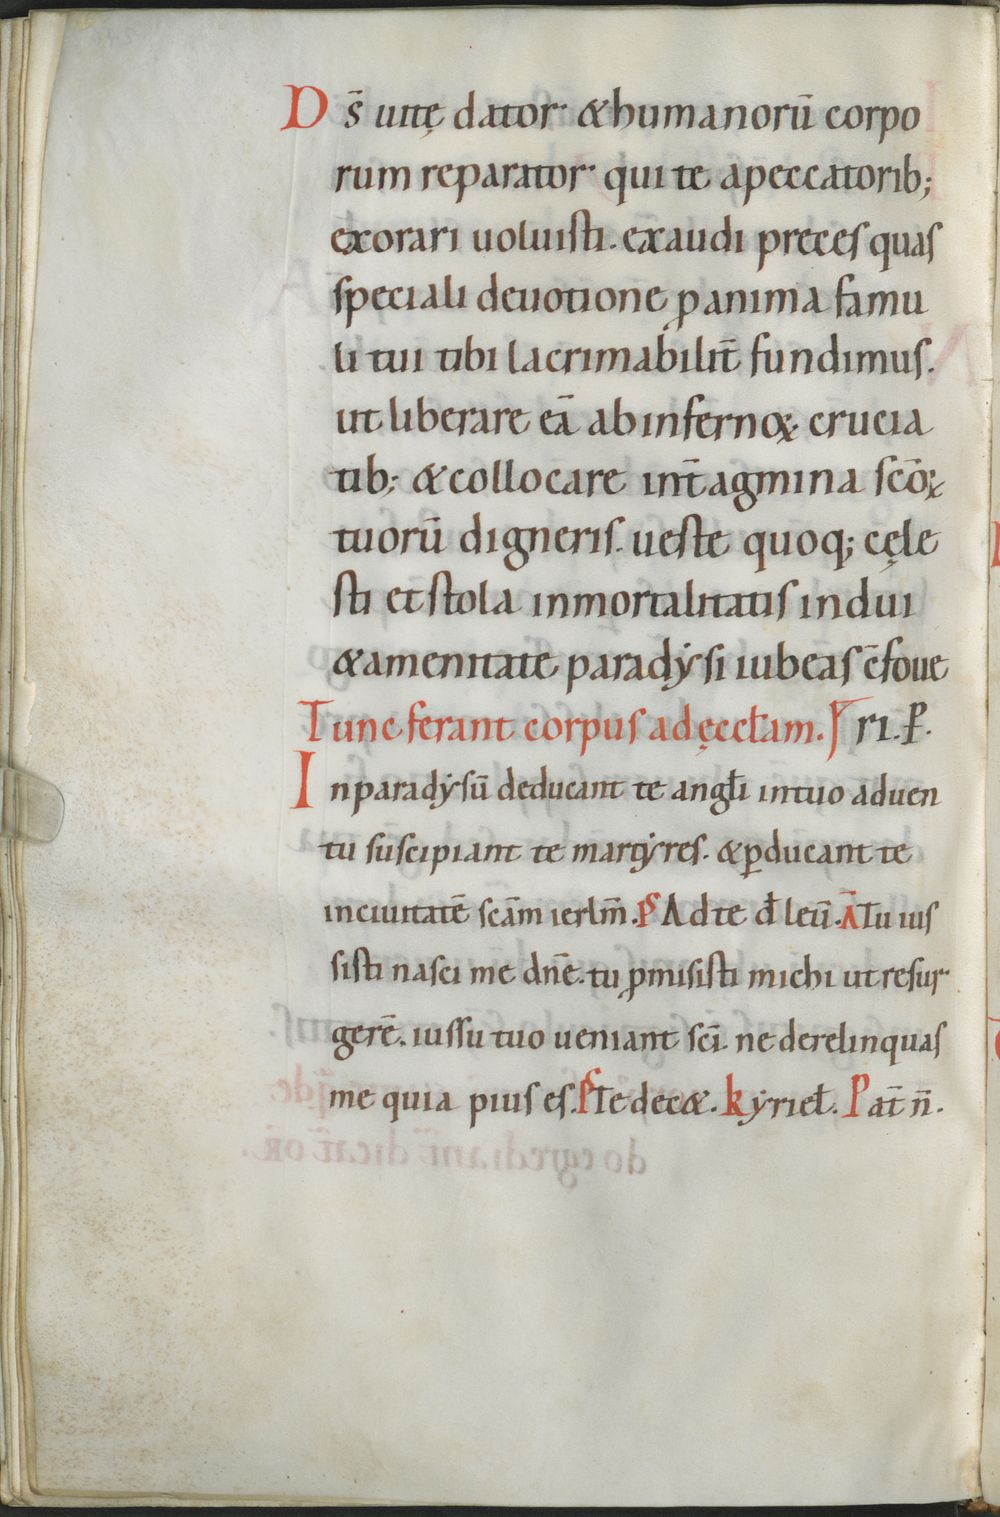 Ds̄ uitę dator & humanorū corpo
rum reparator qui te apeccatorib;
exorari uoluisti. exaudi preces quas
speciali deuotione ꝓ anima famu
li tui tibi lacrimabilit̄ fundimus.
ut liberare eā ab infernoꝝ crucia
tib; & collocare int̄ agmina sc̄oꝝ
tuorū digneris. ueste quoq; cęle
sti et stola inmortalitatis indui
& amenitate paradẏsi iubeas c̄foue
Tunc ferant corpus ad ęccƚam. ri. P.
In paradẏsū deducant te angƚi in tuo aduen
tu suscipiant te martẏres. & ꝑducant te
in ciuitatē sc̄am ierlm̄. Ps Ad te dƚ leū. A Tu ius
sisti nasci me dn̄e. tu ꝓmisisti michi ut resur
gerē. iussu tuo ueniant sc̄i. ne derelinquas
me quia pius es. Ps Te dec&. kẏrieƚ. Pat̄ n̄.